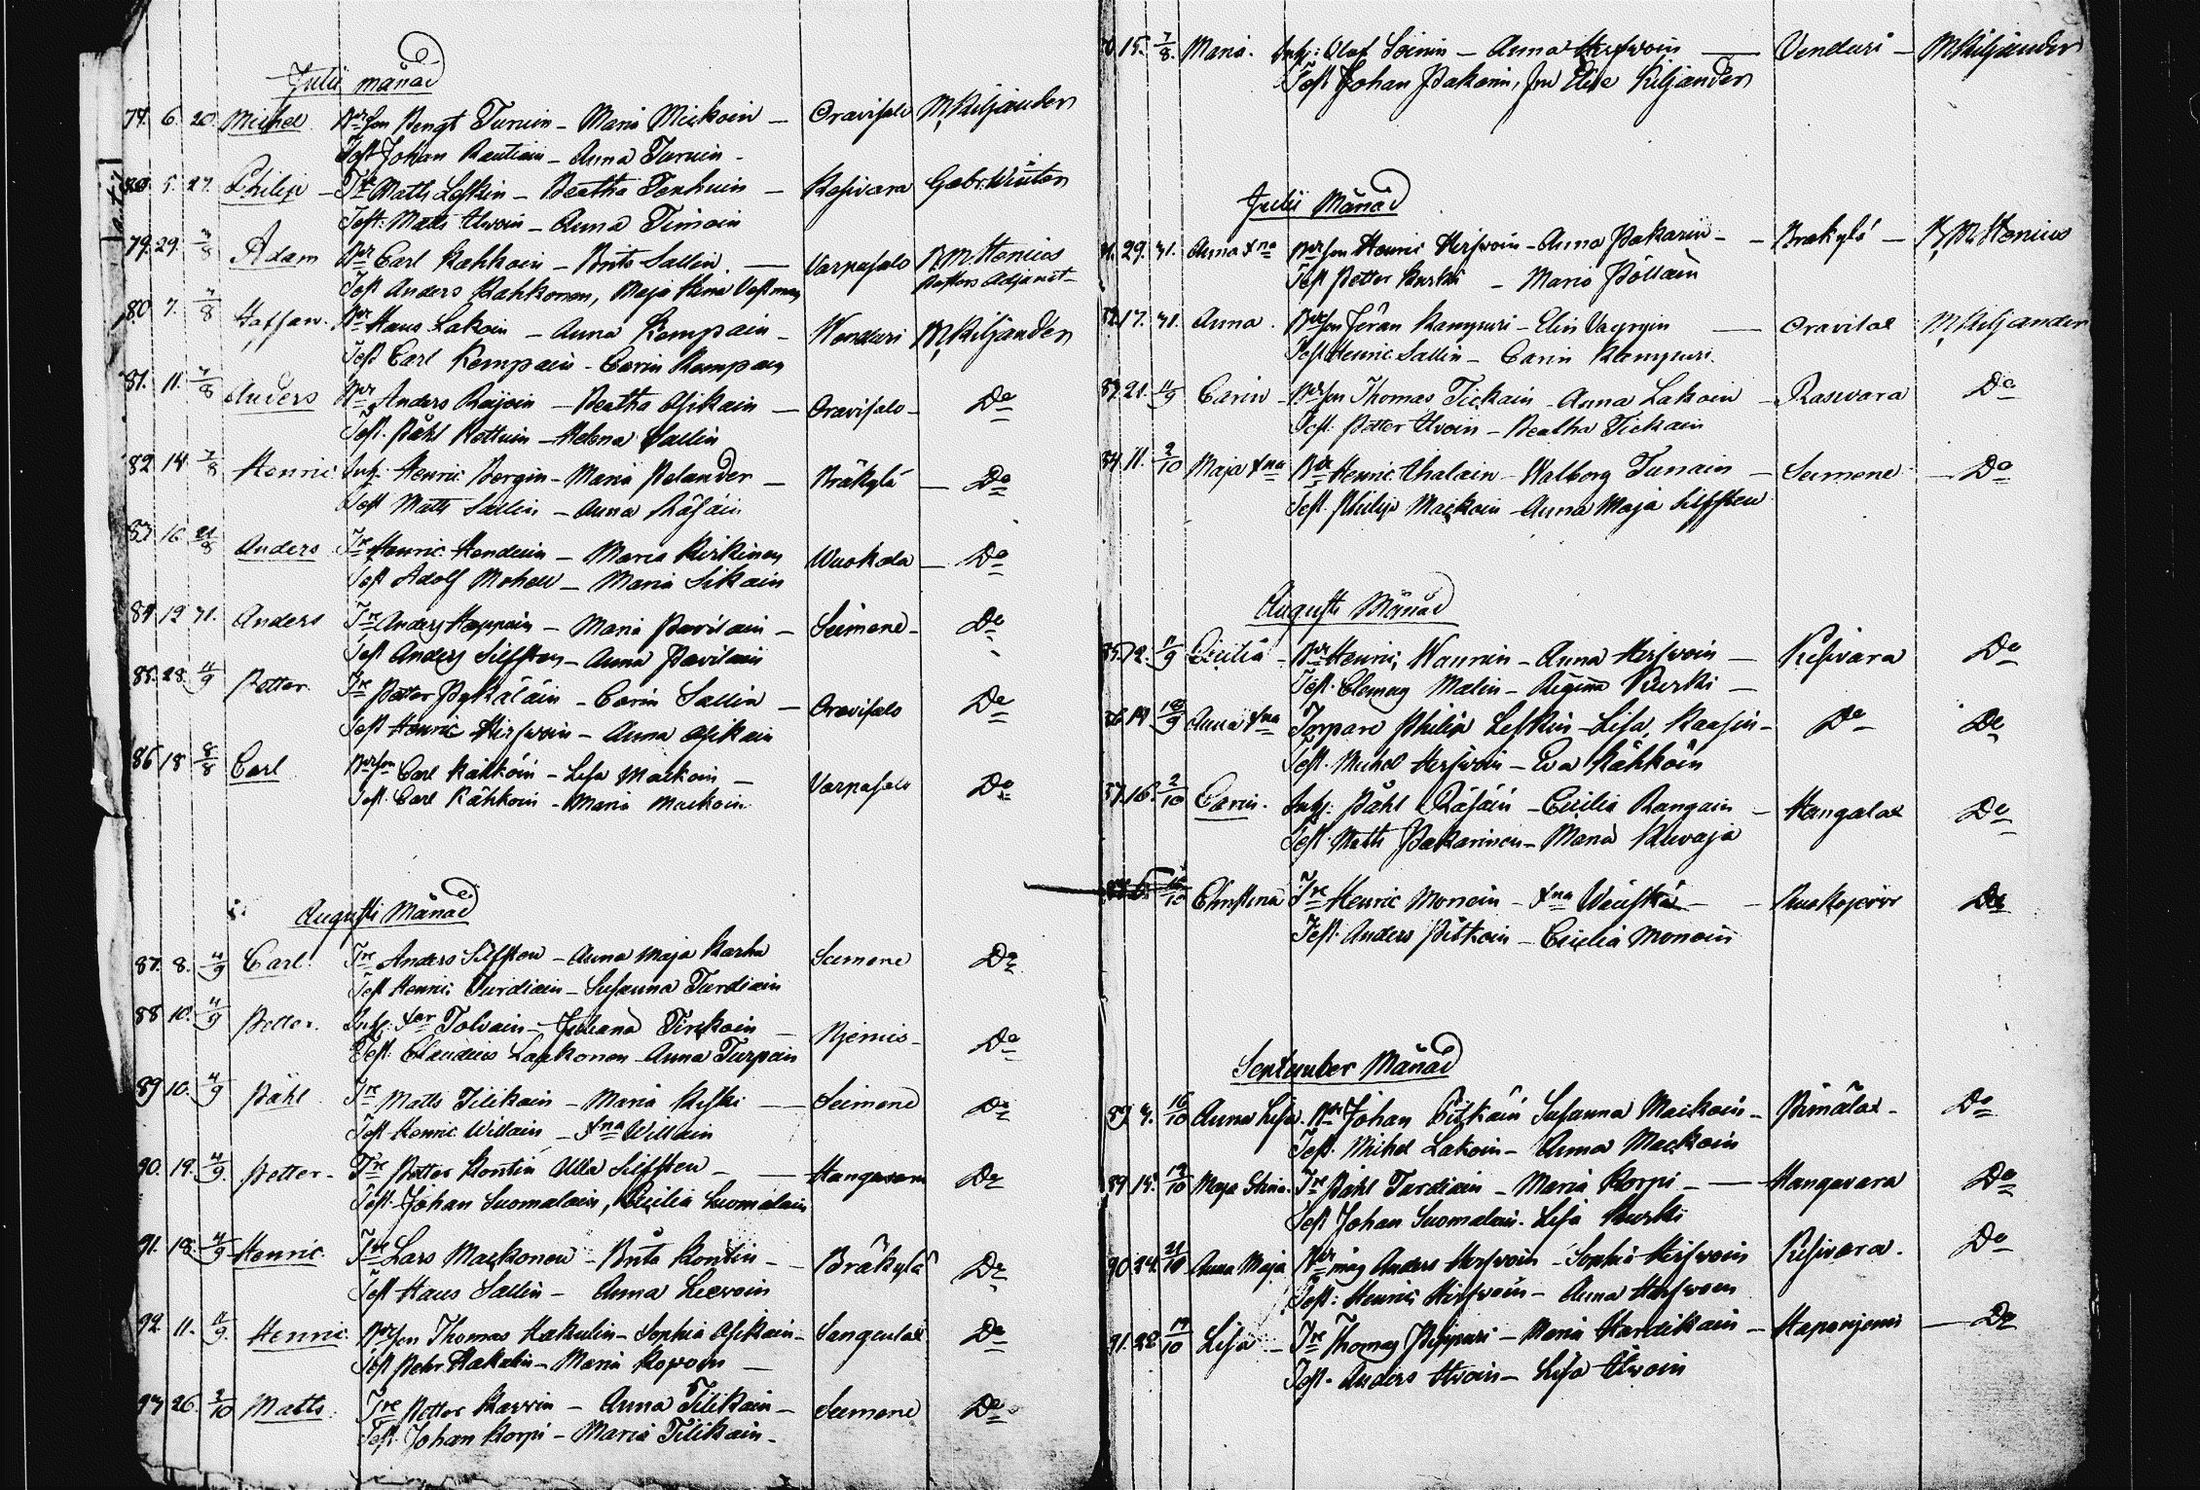 Julii månad
77. 6. 20. Michel Bdeson Bengt Turuin – Maria Mickoin – Oravisalo M. Kiljander
Test Johan Rautiain – Anna Turuin –
5. 27. Philip – Tre Matts Leskin – Beatha Tenhuin – Kesivara Gabr. Winter
Test: Matts Alvoin – Anna Timoin
79. 29. 7/8 Adam Bdr Carl Kahkoin – Brita Sallin – Varpasalo P. M. Stenius
Test Anders Kahkonen, Maja Stina Vestman Pastors Adjunct –
80. 7. 7/8 Staffan. Bdr Hans Lakoin – Anna Kempain – Wenduri M. Kiljander
Test Carl Kempain – Carin Kempain
81. 11. 7/8 Anders Bdr Anders Reijoin – Beatha Asikain – Oravisalo – Do
Test. Påhl Kettuin – Helena Sallin
82 14 7/8 Henric Inh: Henric Bergin – Maria Pelander – Bråkylä – Do
Test Matts Sallin – Anna Räsäin
83 16 21/8 Anders Tre Henric Henduin – Maria Kirkinen Wuokala – Do
Test Adolf – Maria Sikain
84 19 31. Anders Tre Anders Happoin – Maria Pavilain – Seimene – Do
Test Anders Silfsten – Anna Pavilain
85. 28. 11/9 Petter. Tre Petter Pykäläin – Carin Sallin – Oravisalo Do
Test Henric Hirfwoin – Anna Asikain
86 18 8/8 Carl Bdeson Carl Kähköin – Lisa Mackoin – Varpasalo Do
Test. Carl Kähkoin – Maria Mackoin
Augusti Månad
87. 8. 11/9 Carl. Tre Anders Silfsten – Anna Maja Karhu Seimene Do
Test Henric Turdiain – Susanna Turdiain
88 10. 11/9 Petter. Inh: Xer Tolvain – Juliana Tirckoin – Niemis – Do
Test: Claudius Laakonen – Anna Turpain
89 10. 11/9 Påhl Tre Matts Tilikain – Maria Koski – Seimene Do
Test Henric Willain – Xna Willain
90. 19. 11/9. Petter – Tre Petter Kontin Ulla Silfsten – Do
Test. Johan Suomalain, Cecilia Suomalain
91. 18. 11/9 Henric. Tre Lars Mackonen – Brita Kontin – – Bråkylä Do
Test Hans Sallin – Anna Leevoin
92. 11. 11/9. Henric. Bdeson Thomas Hakulin – Sophia Asikain – Sangenlax Do
Test Pehr Hakulin – Maria –
93 26. 2/10 Matts. Tre Petter Karvin – Anna Tilikain – Seimene Do
Test. Johan Korpi – Maria Tilikain –
15. 7/8. Maria. Inh: Olof Soinin – Anna Hirfwoin – Venduri – M. Kiljander
Test Johan Pakarin, Fru Elise Kiljander
Julii Månad
81. 29. 31. Anna Xna Bdeson Henric Hirfwoin – Anna Pakarin – – Bråkylä – P. M. Stenius
Test Petter Kurki – Maria Pöllän
82. 17. 31. Anna. Bdeson Jöran Kempuri – Elin Väyryin – Oravilax M. Kiljander
Test Henric Sallin – Carin Kempuri
83. 21. 11/9 Carin – Bdeson Thomas Tickain – Anna Lakoin – Rasivara Do
Test. Petter Alvoin – Beatha Tickain
84. 11. 2/10 Maja Xna Bdr Henric Ahalain – Walborg Tunain – Seimene – Do
Test. Philip Mackoin – Anna Maja Silfsten
Augusti Månad
85. 2. 11/9 Cicilia – Bdr Henric Wannin – Anna Hirfwoin – Kesivara Do
Test. Clemens Malin – Regina Kurki –
86 14 18/9 Anna Xna Torpare Philip Leskin – Lisa Kaasin – Do Do
Test. Michel Hirfwoin – Eva Kähköin
87. 16. 2/10 Carin. Inh: Påhl Räsäin – Cicilia Rangain – Hangalax Do
Test. Matts Pakarinen – Maria Kuvaja
Christina Tre Henric Monoin – Xna – Do
Test. Anders Pitkoin – Cecilia Monoin
September Månad
16/10 Anna Lisa. Bdr Johan Pitkäin Susanna Mackoin – Pimälax – Do
Test. Michel Lakoin – Anna Mackoin
89 15. 19/10 Maja Stina. Tre Påhl Turdiain – Maria Korpi – Hangavara Do
Test Johan Suomalain. Lisa Kurki
90 24. 21/10 Anna Maja Bdr måg Anders Hirfwoin – Sophia Hirfwoin Kesivara. Do
Test: Henric Hirfwoin – Anna Hirfwoin
91. 28 19/10 Lisa – Tre Thomas Pippuri – Maria Hardikain – Haponiemi – Do
Test. Anders Alvoin – Lisa Alvoin